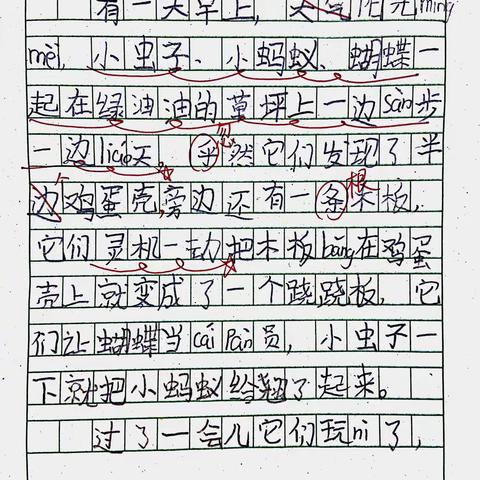 有一天早上，天气阳光míng
mèi，小虫子、小蚂蚁、蝴蝶一
起在绿油油的草坪上一边sàn步
一边liáo天。乎忽然它们发现了半
边个鸡蛋壳，旁边还有一条根木板，
它们灵机一动把木板bǎng在鸡蛋
壳上就变成了一个跷跷板，它
们让蝴蝶当cái Pàn员，小虫子一
下就把小蚂蚁给翘了起来。
过了一会儿它们玩nì了，